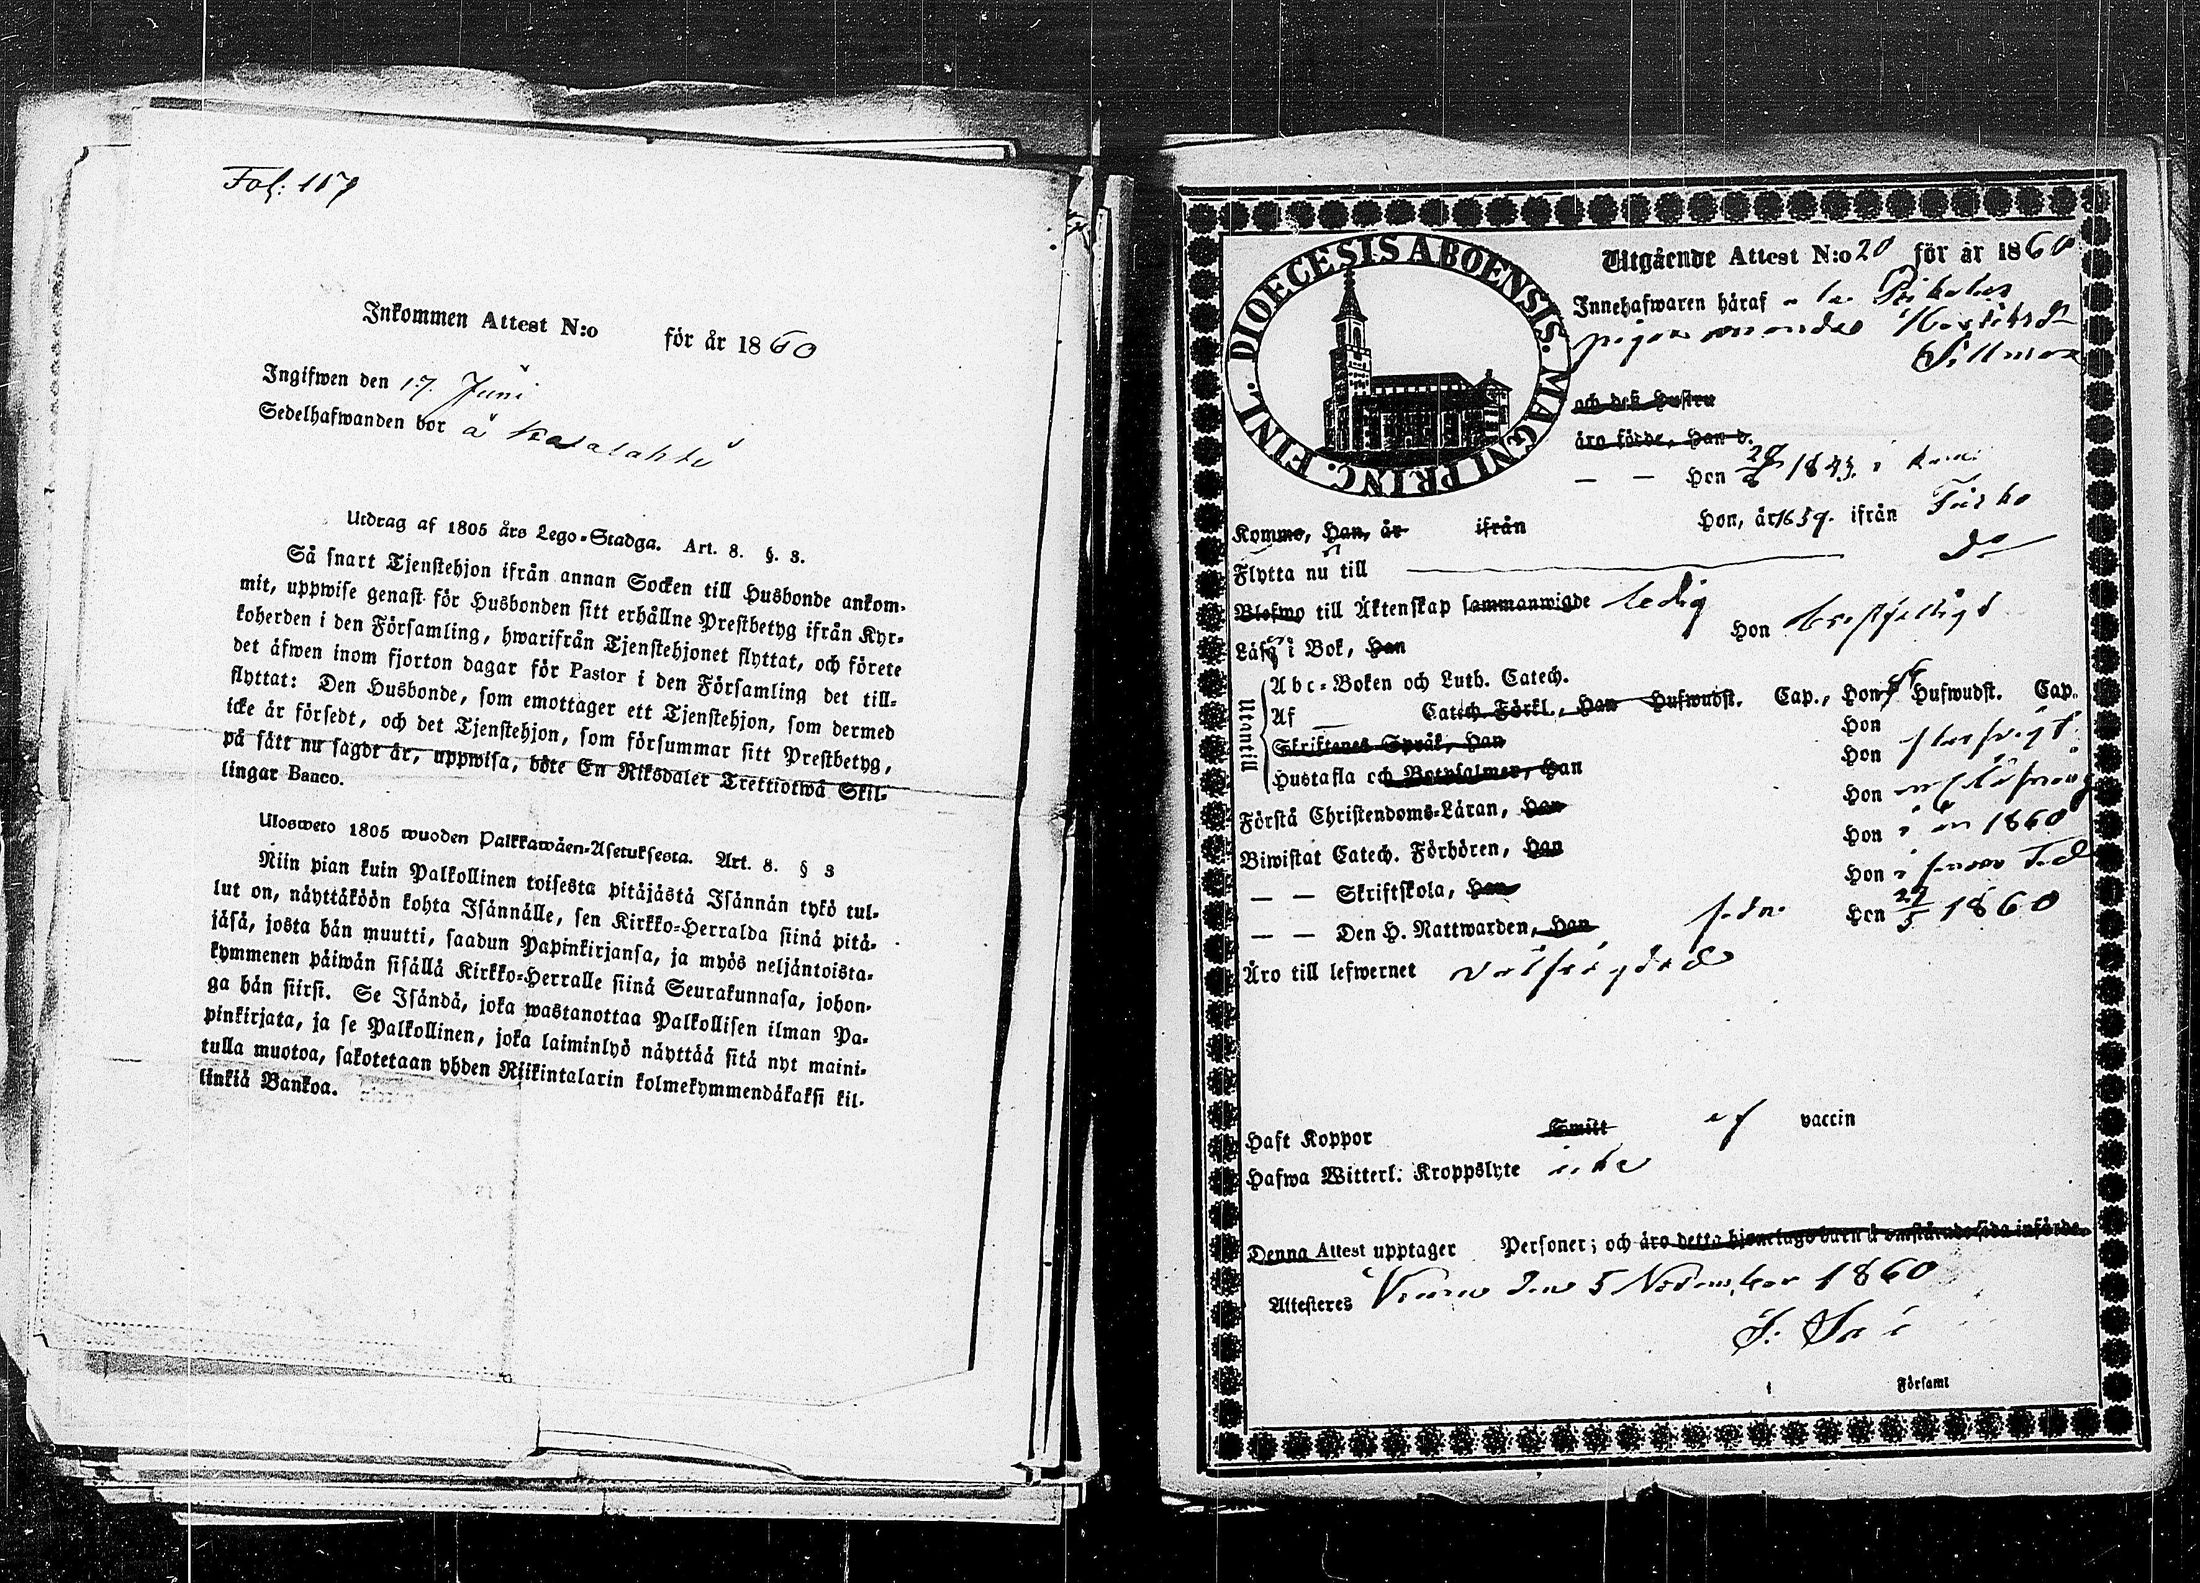 Fol: 157
Inkommen Attest N:o för år 1860
Ingifwen den 17 Juni
Sedelhafwanden bor å
Utdrag af 1805 års Lego-Stadga. Art. 8. §. 3.
Så snart Tjenstehjon ifrån annan Socken till Husbonde ankom-
mit, uppwise genast för Husbonden sitt erhållne Prestbetyg ifrån Kyr-
koherden i den Församling, hwarifrån Tjenstehjonet flyttat, och förete
det äfwen inom fjorton dagar för Pastor i den Församling det till-
flyttat: Den Husbonde, som emottager ett Tjenstehjon, som dermed
icke är försedt, och det Tjenstehjon, som försummar sitt Prestbetyg,
på sätt nu sagdt är, uppwisa, böte En Riksdaler Trettiotwå Skil-
lingar Banco.
Ulosweto 1805 wuoden Palkkawäen-Asetuksesta. Art. 8. § 3
Niin pian kuin Palkollinen toisesta pitäjästä Isännän tykö tul-
lut on, näyttäköön kohta Isännälle, sen Kirkko-Herralda siinä pitä-
jäsä, josta hän muutti, saadun Papinkirjansa, ja myös neljäntoista-
kymmenen päiwän sisällä Kirkko-Herralle siinä Seurakunnasa, johon-
ga hän siirsi. Se Isändä, joka wastanottaa Palkollisen ilman Pa-
pinkirjata, ja se Palkollinen, joka laiminlyö näyttää sitä nyt maini-
tulla muotoa, sakotetaan yhden Riikintalarin kolmekymmendäkaksi kil-
linkiä Bankoa.
DIOECESIS ABOENSIS. MAGNI PRINC. FINL.
Utgående Attest N:o 20 för år 1860
Innehafwaren häraf
pigan
och des Hustru
äro födde, Han d.
— — Hon 1843 i
Komma, Han, år ifrån Hon, år 1859. ifrån
Flytta nu till do
Blefwo till Äktenskap sammanwigde ledig
Läsa i Bok, Han Hon
Utantill
Abc-Boken och Luth. Catech.
Af Catech. Förkl., Han Hufwudst. Cap., Hon Hufwudst. Cap.
Skriftenes Språk, Han Hon
Hustafla och Botpsalmer, Han Hon
Förstå Christendoms-Läran, Han Hon
Biwistat Catech. Förhören, Han Hon i år 1860
— — Skriftskola, Han Hon i
— — Den H. Nattwarden, Han Hon 27/5 1860
Äro till lefwernet
Haft Koppor Smitt af vaccin
Hafwa Witterl. Kroppslyte icke
Denna Attest upptager Personer; och äro detta hjonelags barn å omstående sida införde.
Attesteres den 5 November 1860
Församl